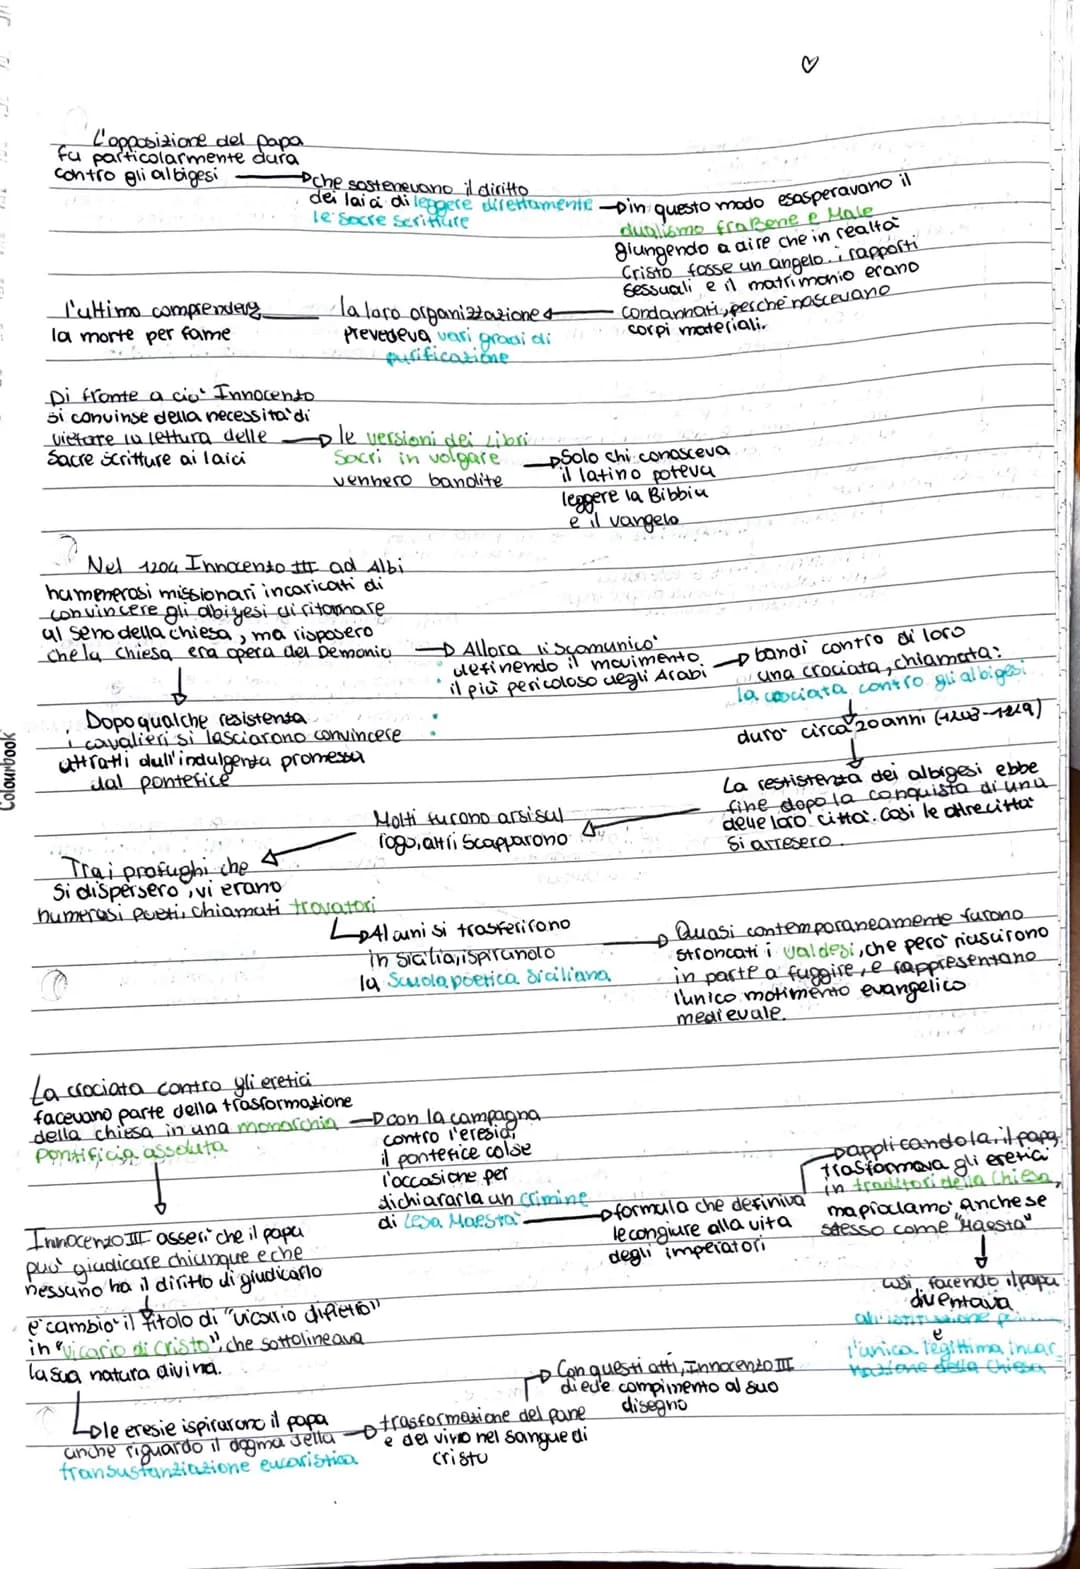 L'opposizione del Papa
fu particolarmente dura
contro gli albigesi
che sostenevano il diritto
dei laici di leggere direttamente
le sacre scritture
in questo modo esasperavano il
dualismo fra Bene e Male
giungendo a dire che in realtà
Cristo fosse un angelo. i rapporti
sessuali e il matrimonio erano
condannati, perché nascevano
corpi materiali.
la loro organizzazione
prevedeva vari gradi di
purificazione
l'ultimo comprendeva
la morte per fame
Di fronte a ciò Innocenzo
si convinse della necessità di
vietare la lettura delle
Sacre Scritture ai laici
le versioni dei Libri
Sacri in volgare
vennero bandite
Solo chi conosceva
il latino poteva
leggere la Bibbia
e il vangelo
Nel 1204 Innocenzo III ad Albi
numerosi missionari incaricati di
convincere gli albigesi di ritornare
al seno della chiesa, ma risposero
che la chiesa era opera del Demonio
Allora li scomunicò
definendo il movimento
il più pericoloso degli Arabi
bandì contro di loro
una crociata, chiamata:
la crociata contro gli albigesi
durò circa 20 anni
Dopo qualche resistenza
i cavalieri si lasciarono convincere
attratti dall'indulgenza promessa
dal pontefice
La restistenza dei albigesi ebbe
fine dopo la conquista di una
delle loro città. Così le altre città
si arresero.
Molti furono arsi sul
rogo, altri scapparono
Tra i profughi che
si dispersero, vi erano
numerosi poeti, chiamati trovatori
Alcuni si trasferirono
in Sicilia, ispirando
la Scuola poetica Siciliana
Quasi contemporaneamente furono
stroncati i valdesi, che però riuscirono
in parte a fuggire, e rappresentano
l'unico motimento evangelico
medievale.
La crociata contro gli eretici
facevano parte della trasformazione
della chiesa in una monarchia
pontificia assoluta
con la campagna
contro l'eresia,
il pontefice colse
l'occasione per
dichiararla un crimine
di Lesa Maestà
formula che definiva
le congiure alla vita
degli imperatori
applicandola, il papa
trasformava gli eretici
in traditori della Chiesa,
ma proclamò anche se
stesso come "Maestà"
così facendo il papa
diventava
e
l'unica legittima incar
nazione della Chiesa
Innocenzo III asserì che il papa
può giudicare chiunque e che
nessuno ha il diritto di giudicarlo
e cambiò il titolo di "vicario di Pietro"
in "vicario di Cristo", che sottolineava
la sua natura divina.
le eresie ispirarono il papa
anche riguardo il dogma della
transustanziazione eucaristica
trasformazione del pane
e del vino nel sangue di
cristo
Con questi atti, Innocenzo III
diede compimento al suo
disegno
Colourbook